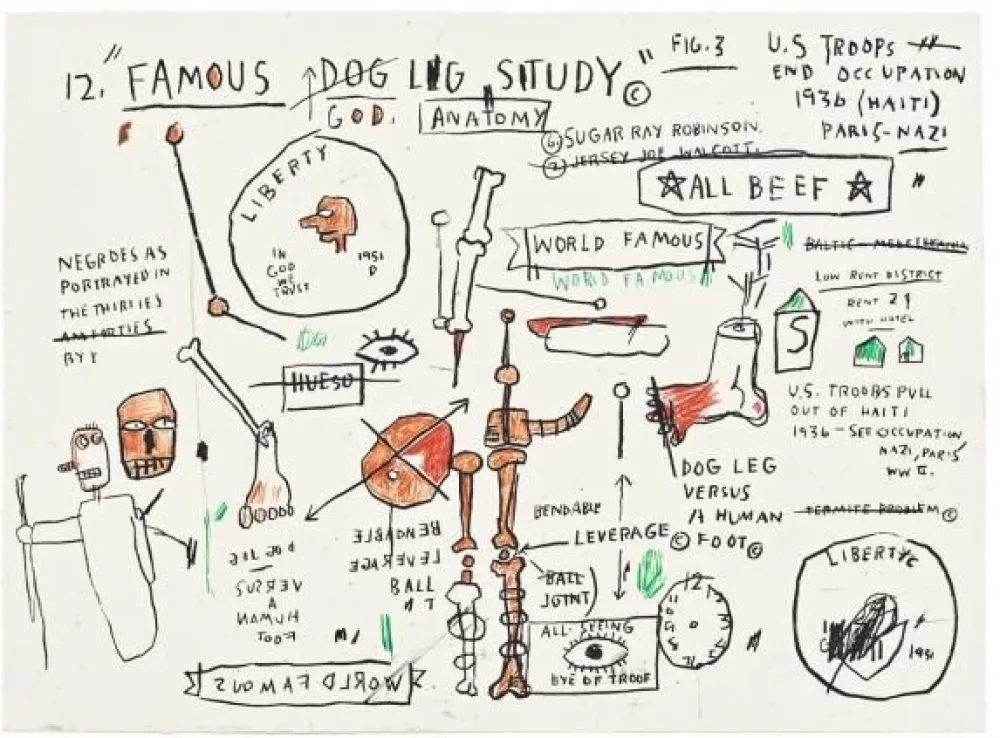 12. "FAMOUS DOG LEG STUDY" ©
GOD.
ANATOMY
FIG. 3
U.S TROOPS
END OCCUPATION
1936 (HAITI)
PARIS-NAZI
⑥ SUGAR RAY ROBINSON.
② JERSEY JOE WALCOTT.
☆ ALL BEEF ☆
"
LIBERTY
IN
GOD
WE
TRUST
1951
D
WORLD FAMOUS
WORLD FAMOUS
BALTIC-MEDETERANIA
LOW RENT DISTRICT
RENT 2
WITH HOTEL
S
NEGROES AS
PORTRAYED IN
THE THIRTIES
AM FORTIES
BY
HUESO
U.S. TROOPS PULL
OUT OF HAITI
1936 - SEE OCCUPATION
NAZI, PARIS
WW II.
DOG LEG
VERSUS
A HUMAN
FOOT ©
TERMITE PROBLEM ©
BENDABLE
LEVERAGE ©
BALL
JOINT
BENDABLE
LEVERAGE
BALL
DOG LEG
VERSUS
A
HUMAN
FOOT
ALL-SEEING
BYE OF TROOF
12
LIBERTY
1951
WORLD FAMOUS